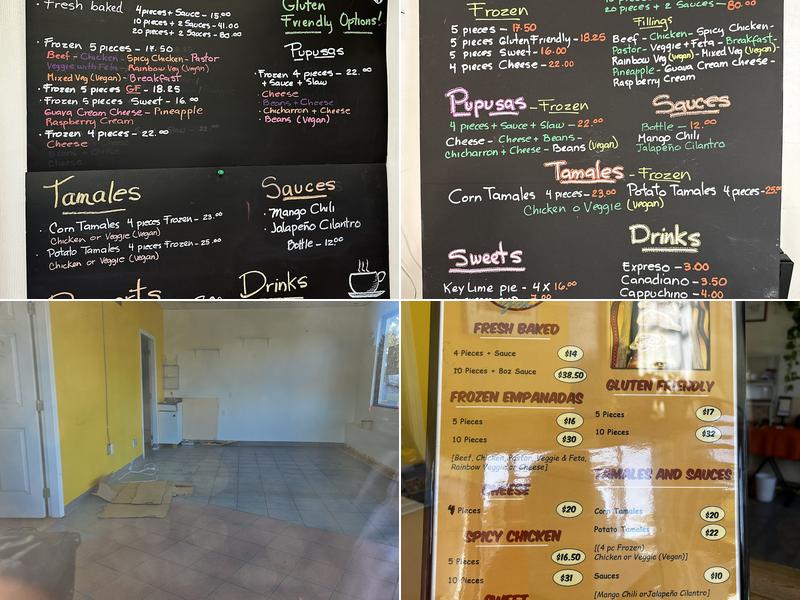 Fresh baked 4 pieces + Sauce - 15.00
10 pieces + 2 Sauces - 41.00
20 pieces + 2 Sauces - 80.00
• Frozen 5 pieces - 17.50
Beef - Chicken - Spicy Chicken - Pastor
Veggie with Feta - Rainbow Veg (Vegan)
Mixed Veg (Vegan) - Breakfast
• Frozen 5 pieces GF - 18.25
• Frozen 5 pieces Sweet - 16.00
Guava Cream Cheese - Pineapple
Raspberry Cream
• Frozen 4 pieces - 22.00
Cheese
Gluten
Friendly Options!
Pupusas
• Frozen 4 pieces - 22.00
+ Sauce + Slaw
• Cheese
• Beans + Cheese
• Chicharron + Cheese
• Beans (Vegan)
Tamales
• Corn Tamales 4 pieces Frozen - 23.00
Chicken or Veggie (Vegan)
• Potato Tamales 4 pieces Frozen - 25.00
Chicken or Veggie (Vegan)
Sauces
• Mango Chili
• Jalapeño Cilantro
Bottle - 12.00
Drinks
Frozen
5 pieces - 17.50
5 pieces Gluten Friendly - 18.25
5 pieces Sweet - 16.00
4 pieces Cheese - 22.00
20 pieces + 2 Sauces - 80.00
Fillings
Beef - Chicken - Spicy Chicken -
Pastor - Veggie + Feta - Breakfast -
Rainbow Veg (Vegan) - Mixed Veg (Vegan) -
Pineapple - Guava Cream Cheese -
Raspberry Cream
Pupusas - Frozen
4 pieces + Sauce + Slaw - 22.00
Cheese - Cheese + Beans -
Chicharron + Cheese - Beans (Vegan)
Sauces
Bottle - 12.00
Mango Chili
Jalapeño Cilantro
Tamales - Frozen
Corn Tamales 4 pieces - 23.00 Potato Tamales 4 pieces - 25.00
Chicken o Veggie (Vegan)
Sweets
Key Lime pie - 4 x 16.00
Drinks
Expreso - 3.00
Canadiano - 3.50
Cappuchino - 4.00
FRESH BAKED
4 Pieces + Sauce $14
10 Pieces + 8oz Sauce $38.50
FROZEN EMPANADAS
5 Pieces $16
10 Pieces $30
[Beef, Chicken, Pastor, Veggie & Feta,
Rainbow Veggie or Cheese]
CHEESE
4 Pieces $20
SPICY CHICKEN
5 Pieces $16.50
10 Pieces $31
SWEET
GLUTEN FRIENDLY
5 Pieces $17
10 Pieces $32
TAMALES AND SAUCES
Corn Tamales $20
Potato Tamales $22
[(4 pc Frozen)
Chicken or Veggie (Vegan)]
Sauces $10
[Mango Chili or Jalapeño Cilantro]